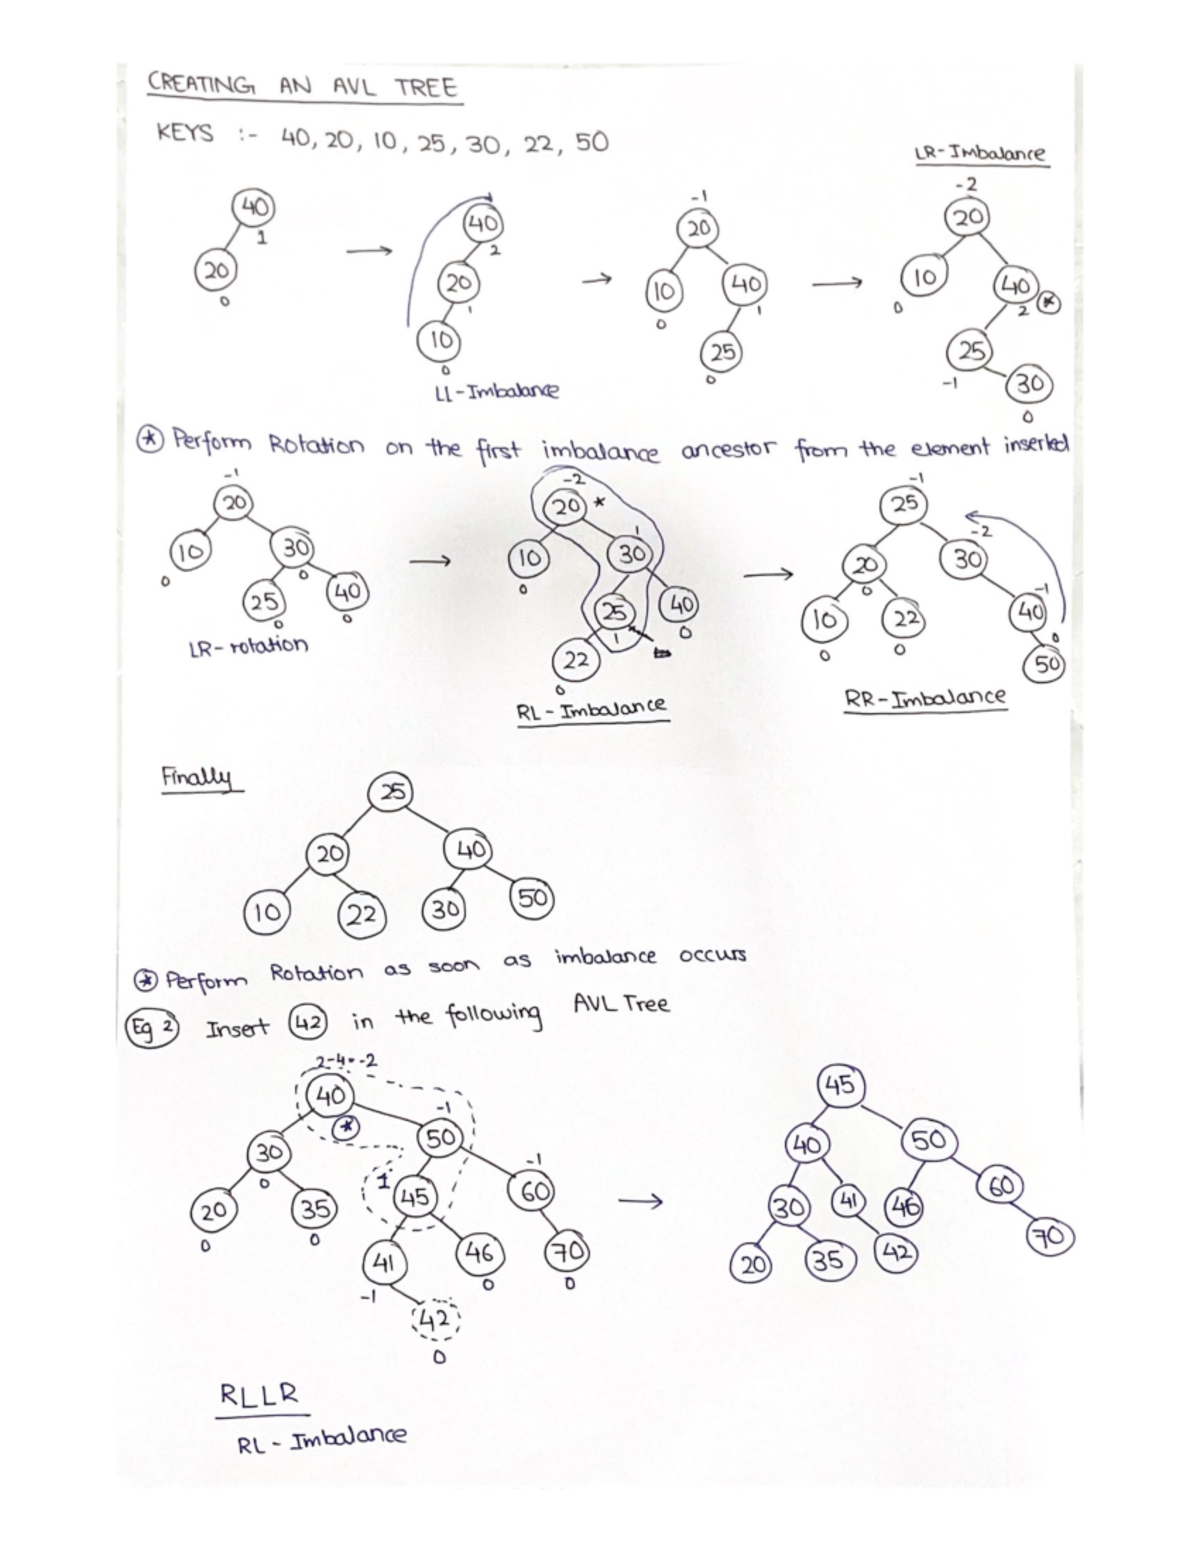 CREATING AN AVL TREE
KEYS :- 40, 20, 10, 25, 30, 22, 50
LR-Imbalance
40 1 20 0
40 2 20 1 10 0
LL-Imbalance
-1 20 10 0 40 1 25 0
-2 20 10 0 40 2 * 25 -1 30 0
* Perform Rotation on the first imbalance ancestor from the element inserted
-1 20 10 0 30 0 25 0 40 0
LR-rotation
-2 20 * 10 0 30 1 25 1 40 0 22 0
RL-Imbalance
-1 25 20 0 30 -2 10 0 22 0 40 -1 50 0
RR-Imbalance
Finally
25
20 40
10 22 30 50
* Perform Rotation as soon as imbalance occurs
Eg 2 Insert 42 in the following AVL Tree
2-4=-2
40 *
30 0 50 -1
20 0 35 0 45 1 60 -1
41 -1 46 0 70 0
42 0
45
40 50
30 41 46 60
20 35 42 70
RLLR
RL - Imbalance